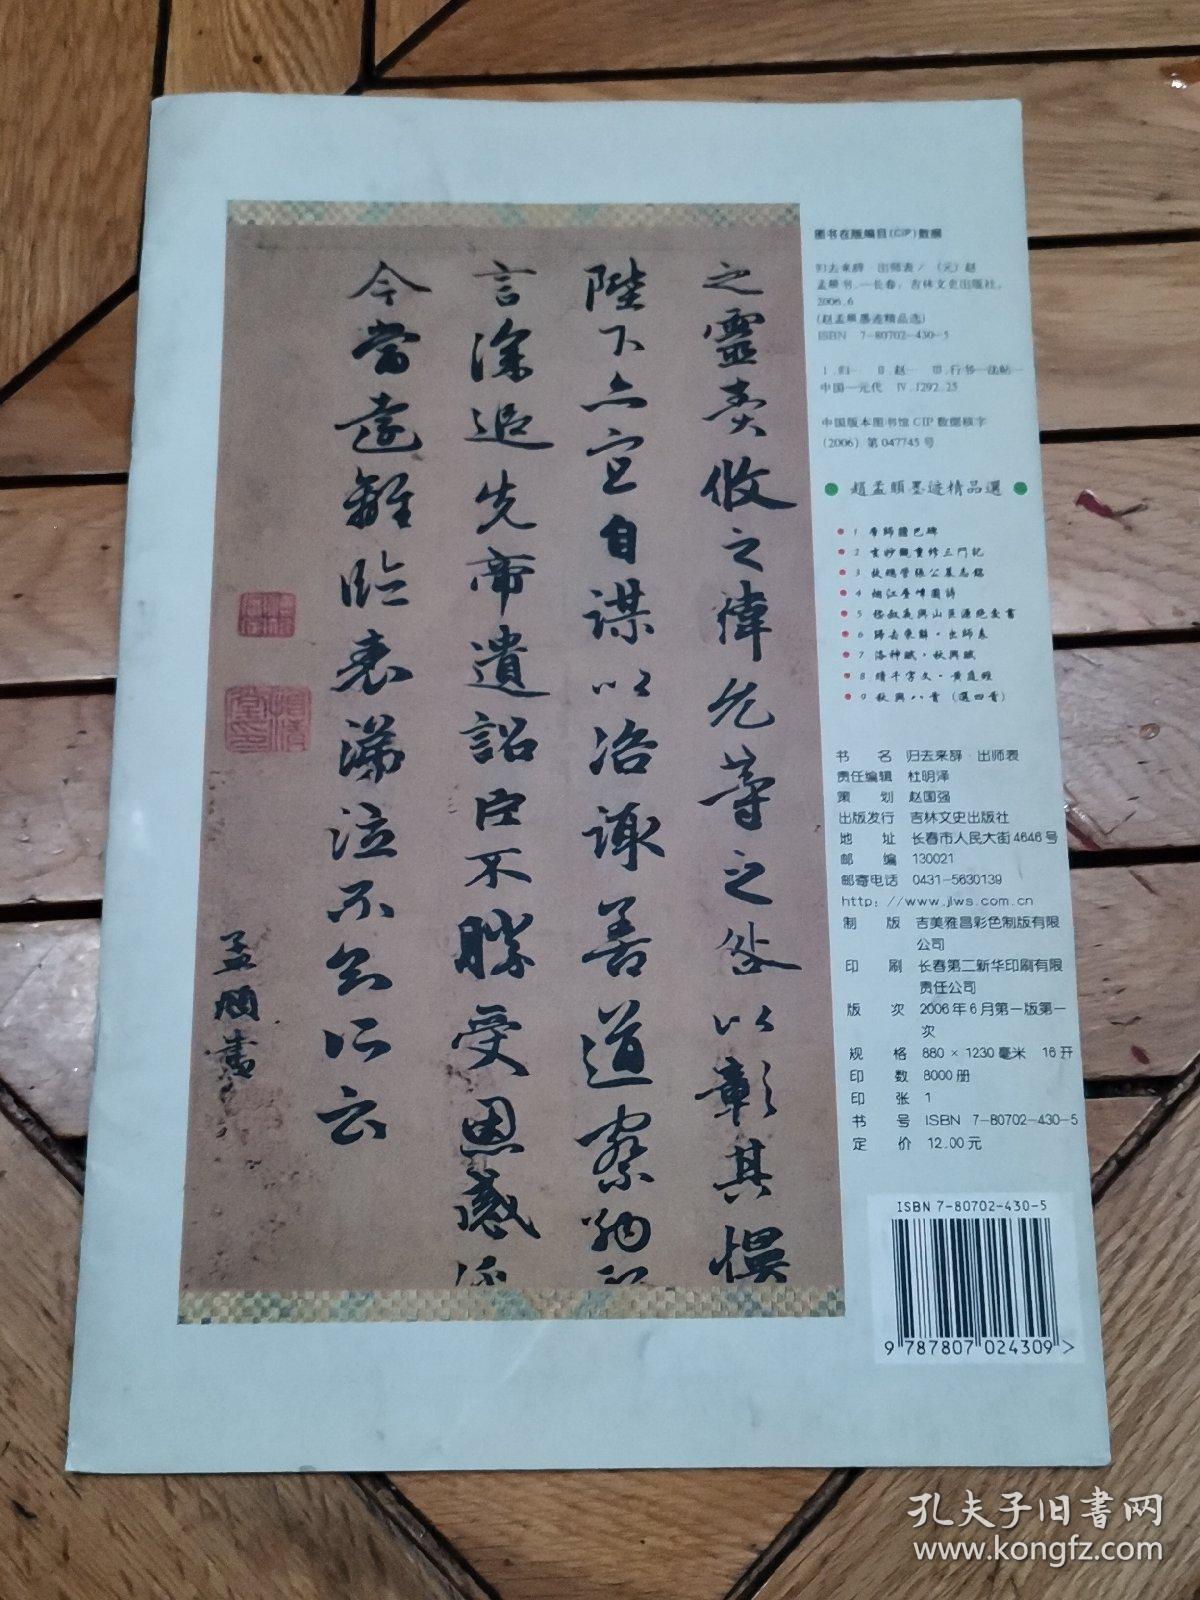 之靈責攸之褘允等之咎以彰其慢
陛下亦宜自謀以咨諏善道察納
言深追先帝遺詔臣不勝受恩感
今當遠離臨表涕泣不知所云
孟頫書
图书在版编目(CIP)数据
归去来辞·出师表/(元)赵
孟頫书.—长春:吉林文史出版社,
2006.6
(赵孟頫墨迹精品选)
ISBN 7-80702-430-5
中国—元代 Ⅳ.1292.25
中国版本图书馆CIP数据核字
(2006)第047745号
趙孟頫墨迹精品選
1 帝師膽巴碑
2 玄妙觀重修三門記
3 故總管張公墓志銘
4 烟江疊嶂圖詩
5 嵇叔夜與山巨源絶交書
6 歸去來辭·出師表
7 洛神賦·秋興賦
8 續千字文·黄庭經
9 秋興八首(選四首)
书名 归去来辞·出师表
责任编辑 杜明泽
策划 赵国强
出版发行 吉林文史出版社
地址 长春市人民大街4646号
邮编 130021
邮寄电话 0431-5630139
http: //www.jlws.com.cn
制版 吉美雅昌彩色制版有限
公司
印刷 长春第二新华印刷有限
责任公司
版次 2006年6月第一版第一
次
规格 880×1230毫米 16开
印数 8000册
印张 1
书号 ISBN 7-80702-430-5
定价 12.00元
ISBN 7-80702-430-5
9 787807 024309 >
孔夫子旧书网
www.kongfz.com